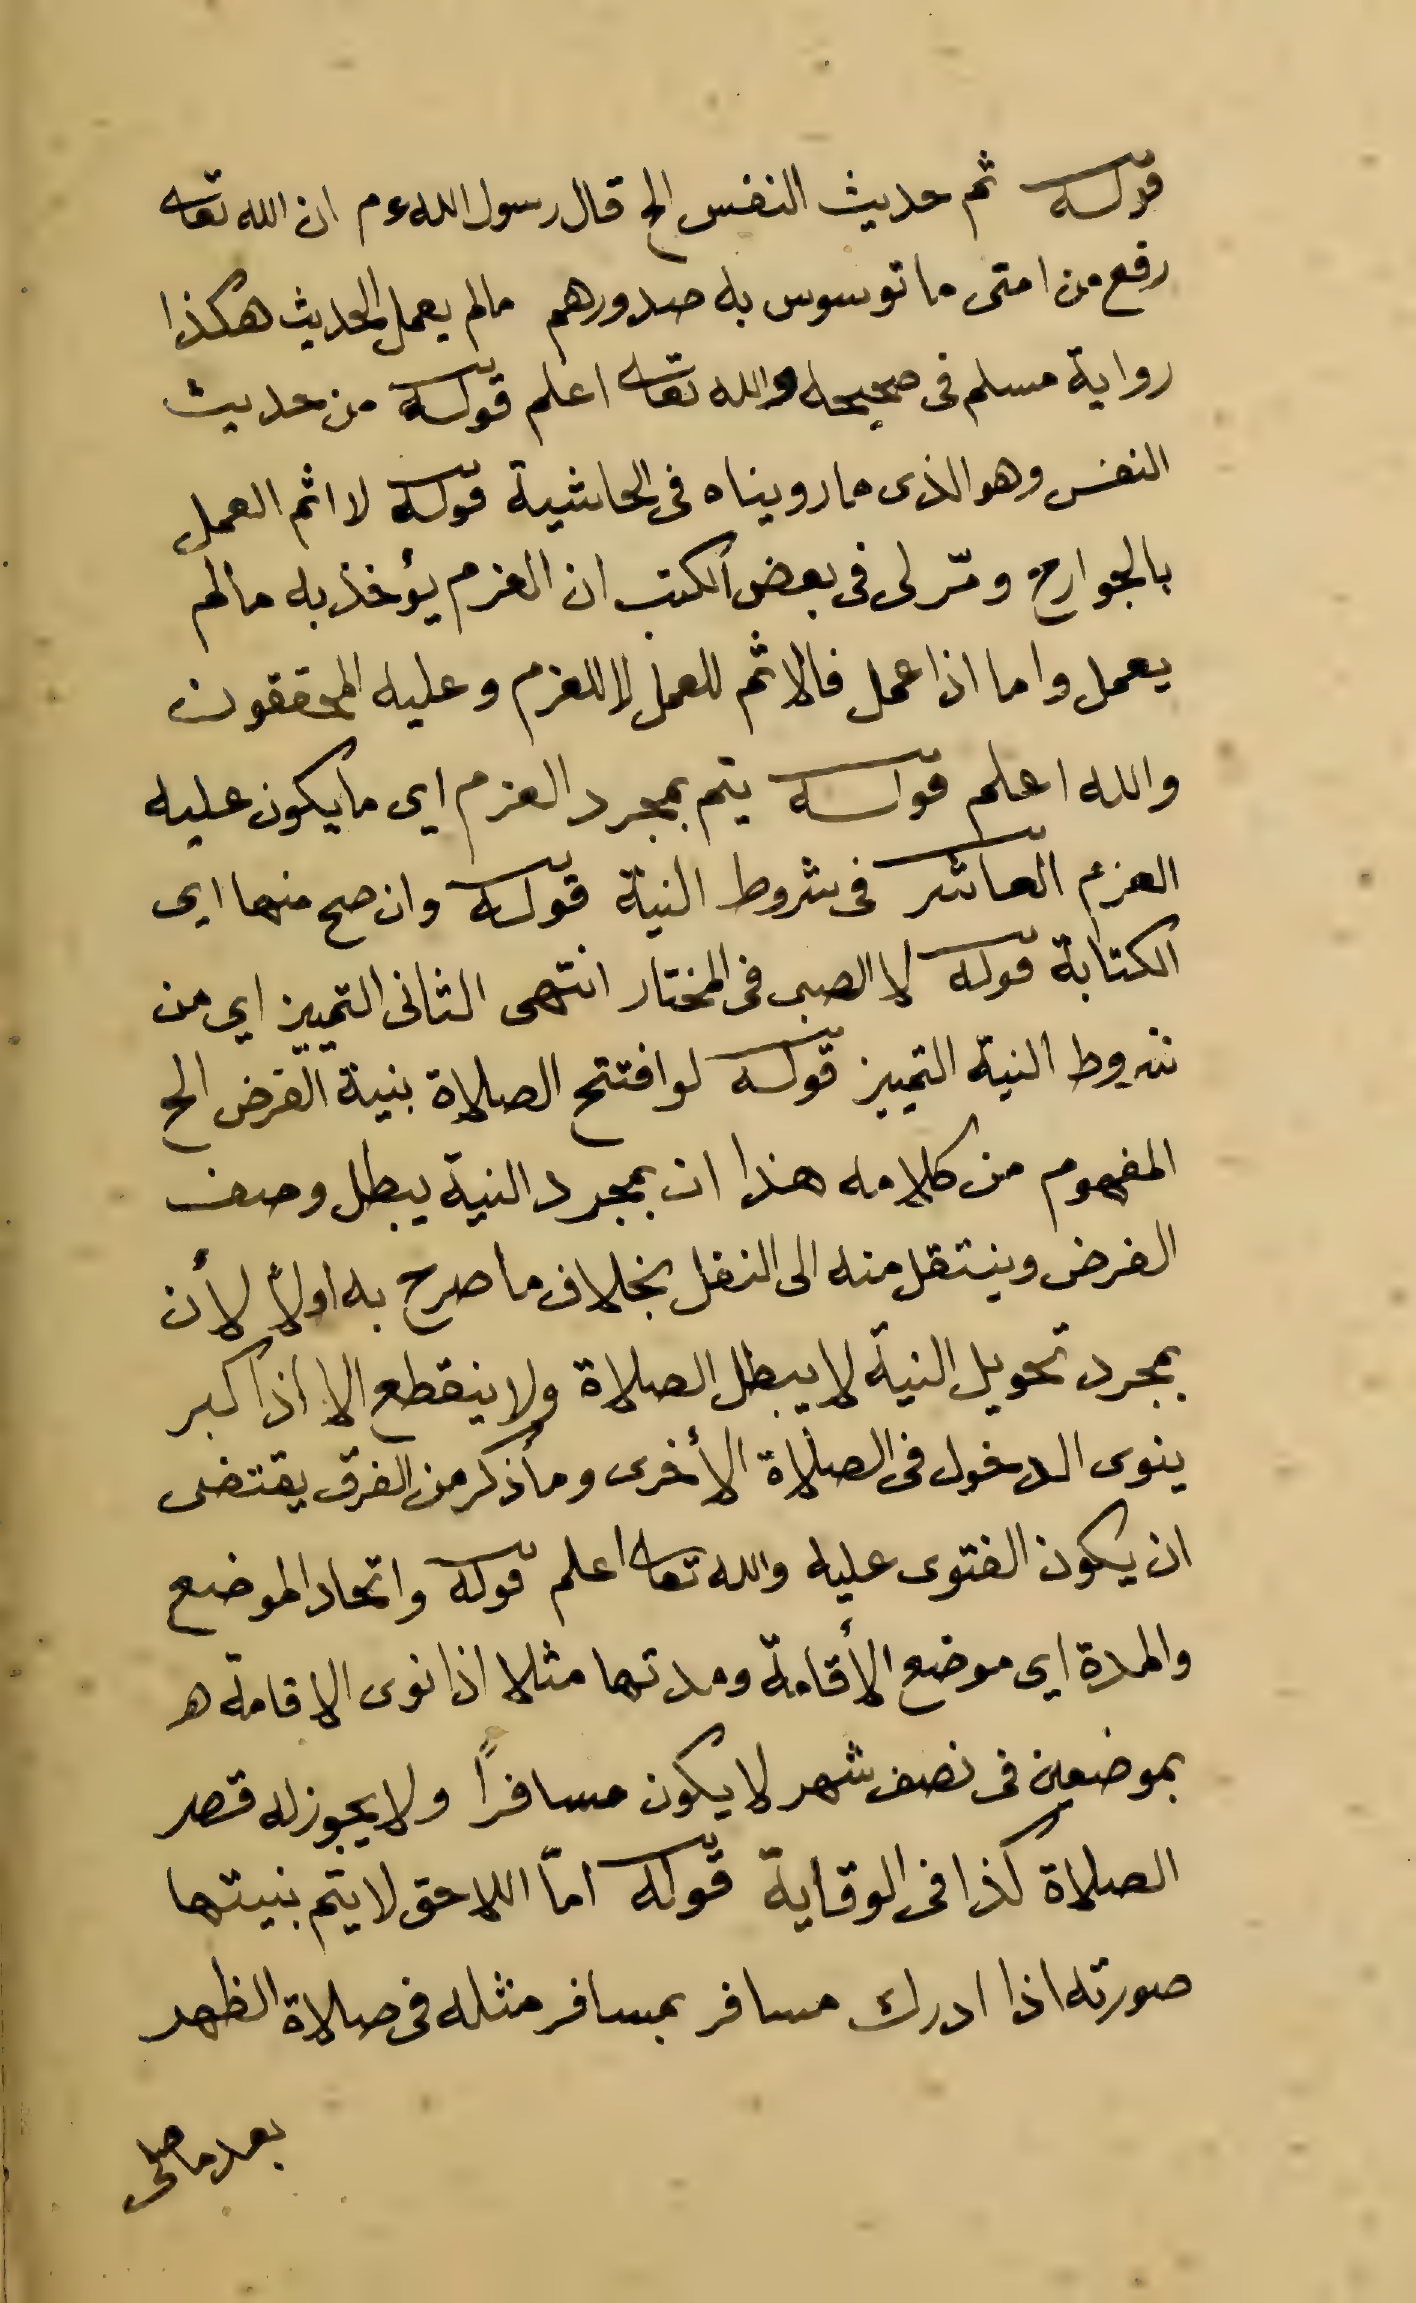 قوله ثم حديث النفس الخ قال رسول الله عم ان الله تعا
رفع من امتى ما توسوس به صدورهم مالم يعمل الحديث هكذا
رواية مسلم فى صحيحه والله تعا اعلم قوله من حديث
النفس وهو الذى ما رويناه فى الحاشية قوله لا اثم العمل
بالجوارح ومّر لى فى بعض الكتب ان العزم يؤخذ به مالم
يعمل واما اذا عمل فالاثم للعمل لا للعزم وعليه المحققون
والله اعلم قوله يتم بمجرد العزم اى ما يكون عليه
العزم العاشر فى شروط النية قوله وان صح منها اى
الكتابة قوله لا الصبى فى المختار انتهى الثانى التمييز اى من
شروط النية التمييز قوله لو افتتح الصلاة بنية الفرض الخ
المفهوم من كلامه هذا ان بمجرد النية يبطل وصف
الفرض وينتقل منه الى النفل بخلاف ما صرح به اولاً لأن
بمجرد تحويل النية لا يبطل الصلاة ولا ينقطع الا اذا كبر
ينوى الدخول فى الصلاة الأخرى وما ذكر من الفرق يقتضى
ان يكون الفتوى عليه والله تعا اعلم قوله واتحاد الموضع
والمدة اى موضع الأقامة ومدتها مثلا اذا نوى الاقامة هـ
بموضعين فى نصف شهر لا يكون مسافرًا ولا يجوز له قصر
الصلاة كذا فى الوقاية قوله امّا اللاحق لا يتم بنيتها
صورته اذا ادرك مسافر بمسافر مثله فى صلاة الظهر
بعد ما صلى